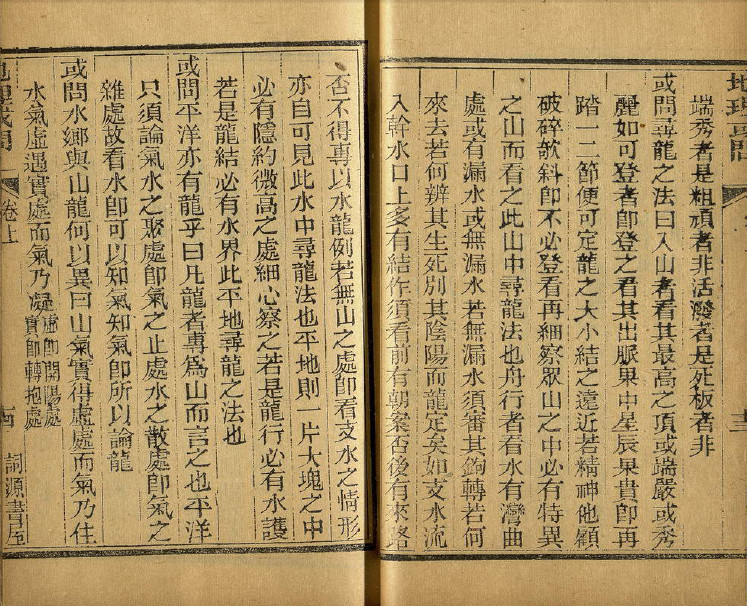 地理或問
十三
端秀者是粗頑者非活潑者是死板者非
或問尋龍之法曰入山者看其最高之頂或端嚴或秀
麗如可登者卽登之看其出脈果中星辰果貴卽再
踏一二節便可定龍之大小結之遠近若精神他顧
破碎欹斜卽不必登看再細察眾山之中必有特異
之山而看之此山中尋龍法也舟行者看水有灣曲
處或有漏水或無漏水若無漏水須審其鉤轉若何
來去若何辨其生死別其陰陽而龍定矣如支水流
入幹水口上多有結作須看前有朝案否後有來路
否不得專以水龍例若無山之處卽看支水之情形
亦自可見此水中尋龍法也平地則一片大塊之中
必有隱約微高之處細心察之若是龍行必有水護
若是龍結必有水界此平地尋龍之法也
或問平洋亦有龍乎曰凡龍者專爲山而言之也平洋
只須論氣水之聚處卽氣之止處水之散處卽氣之
雜處故看水卽可以知氣知氣卽所以論龍
或問水鄉與山龍何以異曰山氣實得虛處而氣乃住
水氣虛遇實處而氣乃凝虛卽開陽處實卽轉抱處
地理或問
卷上
十四
詞源書屋